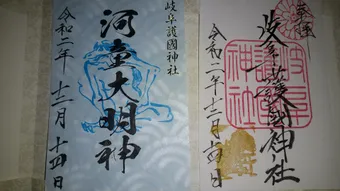 岐阜護國神社
河童大明神
令和二年十二月十四日
奉拝
岐阜護國神社
岐阜護國神社
令和二年十二月十四日